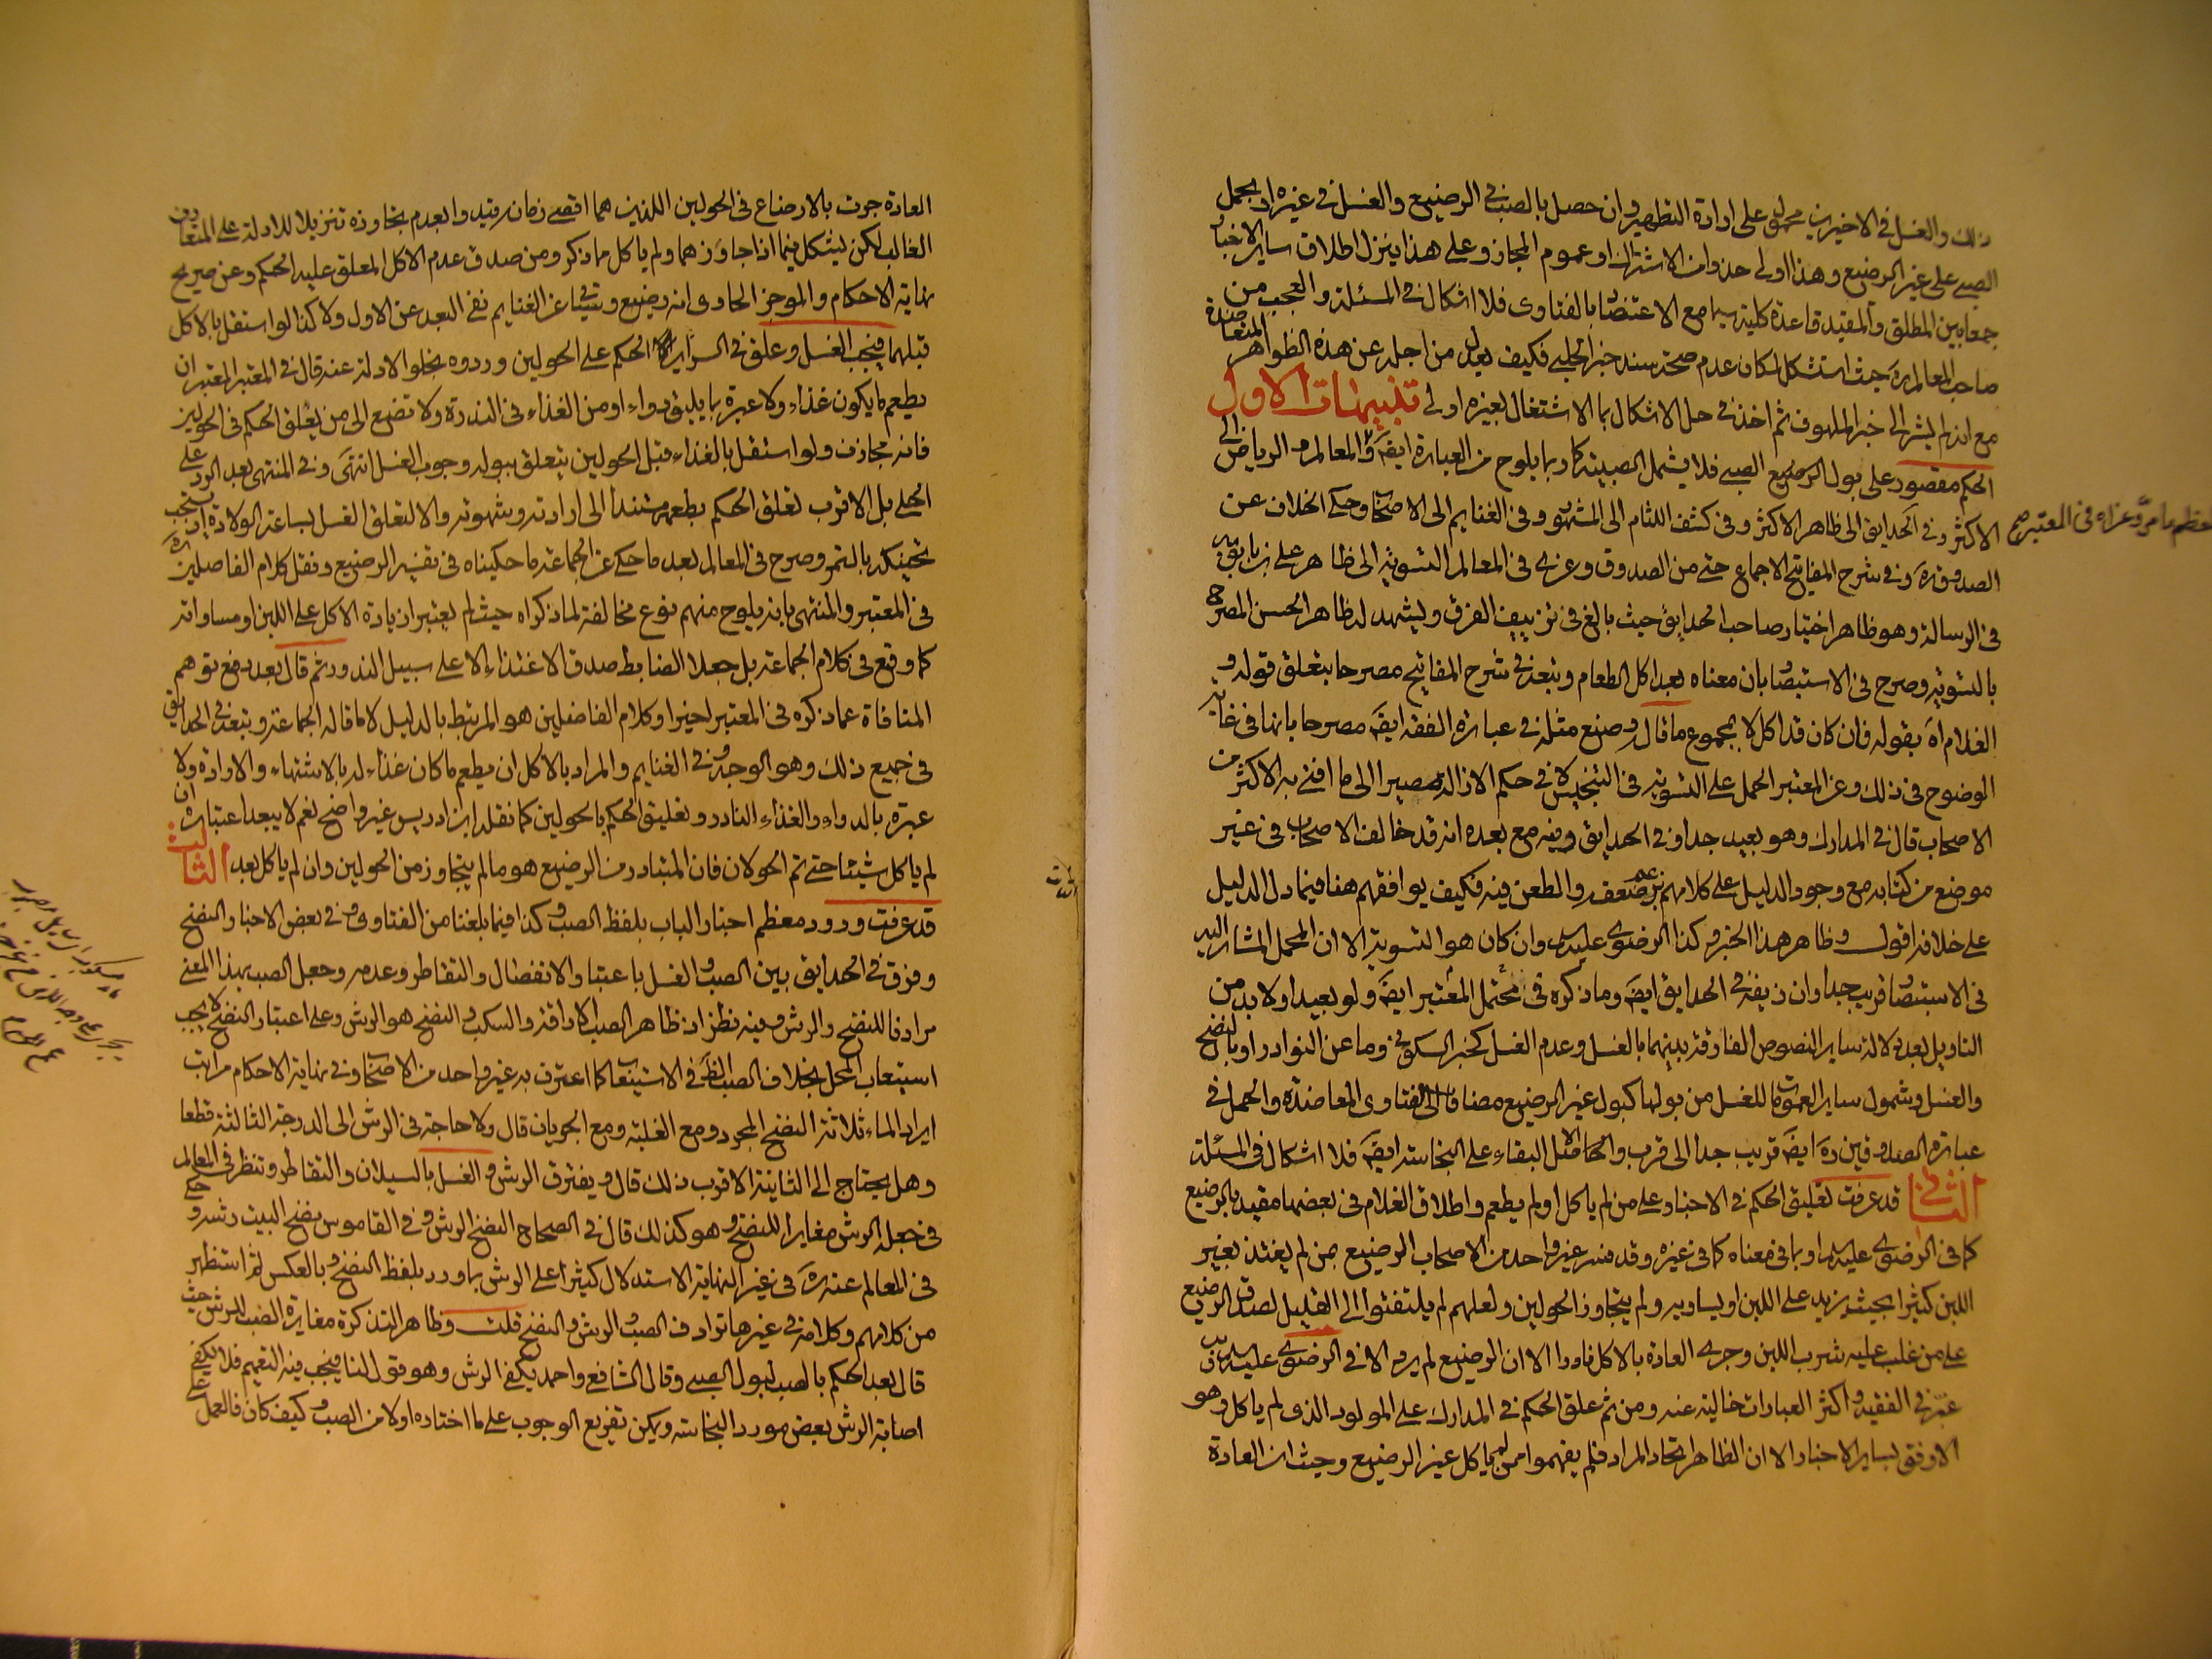 ذلك والغسل في الاخيرين محمول على ارادة التطهير وان حصل بالصب في الرضيع والغسل في غيره او بحمل
الصبي على غير الرضيع وهذا اولى حذرا من الاشتراك او عموم المجاز وعلى هذا ينزل اطلاق ساير الاخبار
جمعا بين المطلق والمقيد قاعدة كلية سيما مع الاعتضاد بالفتاوى فلا اشكال في المسئلة والعجب من
صاحب المعالم ره حيث استشكل لمكان عدم صحة سند خبر الحلبي فكيف يعدل من اجله عن هذه الظواهر المتعاضدة
مع انه لم يشر الى خبر الملهوف ثم اخذ في حل الاشكال بما الاشتغال بغيره اولى تنبيهات الاول
الحكم مقصود على بول الرضيع الصبي فلا يشمل الصبية كما ربما يلوح من العبارة ايضا وفي المعالم والرياض الى
الاكثر وفي الحدايق الى ظاهر الاكثر وفي كشف اللثام الى المشهور وفي الغنايم الى الاصحاب وحكي الخلاف عن
معظم ما مر وعزاه في المعتبر صح
الصدوق ره وفي شرح المفاتيح الاجماع حتى من الصدوق وعزى في المعالم التسوية الى ظاهر علي بن بابويه
في الرسالة وهو ظاهر اختيار صاحب الحدايق حيث بالغ في تزييف الفرق ويشهد له ظاهر الحسن المصرح
بالتسوية وصرح في الاستبصار بان معناه بعد اكل الطعام وتبعه في شرح المفاتيح مصرحا بتعلق قوله و
الغلام اه بقوله فان كان قد اكل لا بمجموع ما قال وصنع مثله في عبارة الفقه ايضا مصرحا بانها في غاية
الوضوح في ذلك وعن المعتبر الحمل على التسوية في التنجيس لا في حكم الازالة مصيرا الى ما افتى به الاكثر من
الاصحاب قال في المدارك وهو بعيد جدا وفي الحدايق وفيه مع بعده انه قد خالف الاصحاب في غير
موضع من كتابه مع وجود الدليل على كلامهم بزعمه ضعفه والطعن فيه فكيف يوافقهم هنا فيما دل الدليل
على خلافه اقول وظاهر هذا الخبر وكذا الرضوي عليه السلام وان كان هو التسوية الا ان المحمل المشار اليه
في الاستبصار قريب جدا وان زيفه في الحدايق ايضا وما ذكره في محتمل المعتبر ايضا ولو بعيدا ولا بد من
التاويل بعد دلالة ساير النصوص الفارقة بينهما بالغسل وعدم الغسل كخبر السكوني وما عن النوادر او بالنضح
والغسل وشمول ساير العمومات للغسل من بولها كبول غير الرضيع مضافا الى الفتاوى المعاضدة والحمل في
عبارة الصدوقين ره ايضا قريب جدا الى قرب والحاصل البقاء على النجاسة ايضا فلا اشكال في المسئلة
الثاني قد عرفت تعليق الحكم في الاخبار على من لم ياكل او لم يطعم واطلاق الغلام في بعضها مقيد بالرضيع
كما في الرضوي عليه السلام او بما في معناه كما في غيره وقد فسر غير واحد من الاصحاب الرضيع بمن لم يغتذ بغير
اللبن كثيرا بحيث يزيد على اللبن او يساويه ولم يتجاوز الحولين ولعلهم لم يلتفتوا الى القليل لصدق الرضيع
على من غلب عليه شرب اللبن وجرى العادة بالاكل نادرا الا ان الرضيع لم يرد الا في الرضوي عليه السلام وان
عبر في الفقيه واكثر العبارات خالية عنه ومن ثم علق الحكم في المدارك على المولود الذي لم ياكل وهو
الاوفق لساير الاخبار الا ان الظاهر اتحاد المراد فلم يفهموا ممن لم ياكل غير الرضيع وحيث ان العادة
العادة جرت بالارضاع في الحولين اللذين هما اقصى زمان قيد والعدم بتجاوزه تنزيلا للادلة على المتعارف
الغالب لكن يشكل فيما اذا جاوزهما ولم ياكل ما ذكر ومن صدق عدم الاكل المعلق عليه الحكم وعن صريح
نهاية الاحكام والموجز الحاوى انه رضيع وتبقى عن الغنايم نفى البعد عن الاول ولا كذا لو استقل بالاكل
قبلهما فيجب الغسل وعلق في السراير الحكم على الحولين وردوه بخلو الادلة عنه قال في المعتبر المعتبر ان
يطعم ما يكون غذاء ولا عبرة بما يليق دواء او من الغذاء في الندرة ولا تضع الى من يعلق الحكم في الحولين
فانه مجازف ولو استقل بالغذاء قبل الحولين يتعلق ببوله وجوب الغسل انتهى وفي المنتهى بعد الرد على
الحلي بل الاقرب تعلق الحكم بطعمه مستندا الى ارادته وشهوته والا لتعلق الغسل بساعة الولادة اذ يستحب
تحنيكه بالتمر وصرح في المعالم بعد ما حكى عن الجماعة ما حكيناه في تفسير الرضيع ونقل كلام الفاضلين ره
في المعتبر والمنتهى بانه يلوح منهم نوع مخالفة لما ذكراه حيث لم يعتبرا زيادة الاكل على اللبن او مساواته
كما وقع في كلام الجماعة بل جعلا الضابط صدق الاغتذاء الا على سبيل الندور ثم قال بعد دفع توهم
المنافاة عما ذكره في المعتبر اخيرا وكلام الفاضلين هو المرتبط بالدليل لا ما قاله الجماعة وتبعه في الحدايق
في جميع ذلك وهو الوجه وفي الغنايم والمراد بالاكل ان يطعم ما كان غذاء له بالاشتهاء والارادة ولا
عبرة بالدواء والغذاء النادر وتعليق الحكم بالحولين كما نقله ابن ادريس غير واضح نعم لا يبعد اعتباره ان
لم ياكل شيئا حتى تم الحولان فان المتبادر من الرضيع هو ما لم يتجاوز من الحولين وان لم ياكل بعد الثالث
قد عرفت ورود معظم اخبار الباب بلفظ الصب وكذا فيما بلغنا من الفتاوى وفي بعض الاخبار النضح
وفرق في الحدايق بين الصب والغسل باعتبار الانفصال والتقاطر وعدمه وجعل الصب بهذا المعنى
مرادفا للنضح والرش وفيه نظر اذ ظاهر الصب الاراقة والسكب والنضح هو الرش وعلى اعتبار النضح لا يجب
استيعاب المحل بخلاف الصب الظاهر في الاستيعاب كما اعترف به غير واحد من الاصحاب وفي نهاية الاحكام مراتب
ايراد الماء ثلاثة النضح المجرد ومع الغلبة ومع الجريان قال ولا حاجة في الرش الى الدرجة الثالثة قطعا
وهل يحتاج الى الثانية الاقرب ذلك قال ويفترق الرش والغسل بالسيلان والتقاطر وتنظر في المعالم
في جعله الرش مغايرا للنضح وهو كذلك قال في الصحاح النضح الرش وفي القاموس نضح البيت رشه وحكى
في المعالم عنه ره في غير النهاية الاستدلال كثيرا على الرش بما ورد بلفظ النضح وبالعكس ثم استظهر
من كلامهم وكلامه في غيرها ترادف الصب والرش والنضح قلت وظاهر التذكرة مغايرة الصب للرش حيث
قال بعد الحكم بالصب لبول الصبي وقال الشافعي واحمد يكفي الرش وهو قول لنا فيجب فيه التعميم فلا يكفي
اصابة الرش بعض مورد النجاسة ويمكن تفريع الوجوب على ما اختاره اولا من الصب وكيف كان فالعمل على